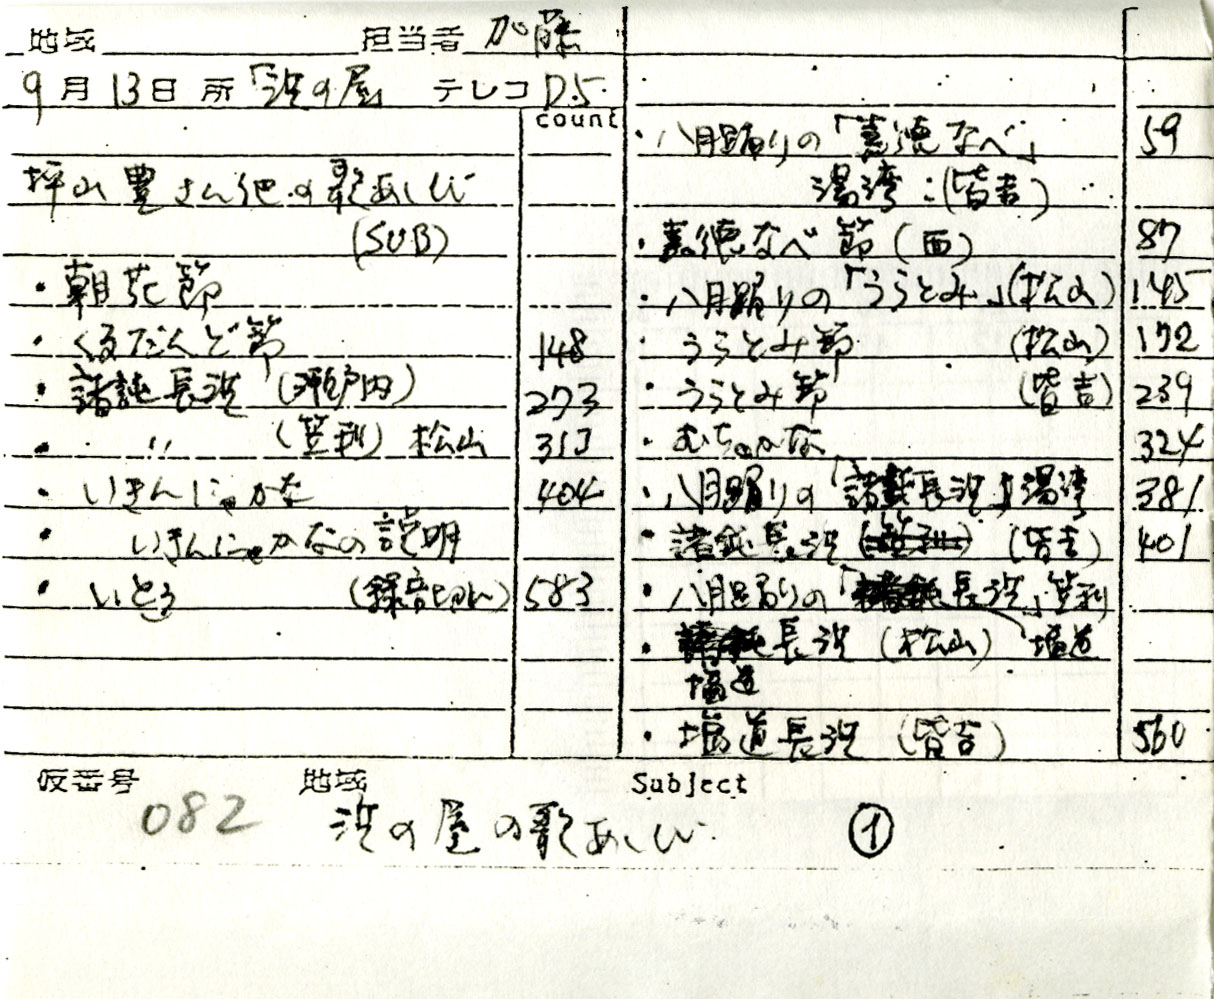 地域 担当者 加藤
9月13日 所「浜の屋」 テレコ D5
count
坪山豊さん他の歌あしび
(SUB)
・朝花節
・くるだんど節 148
・諸鈍長浜 (瀬戸内) 273
・〃 (笠利) 松山 313
・いきんにゃかな 404
・いきんにゃかなの説明
・いとう (録音切れ) 583
・八月踊りの「嘉徳なべ」 59
湯湾:(皆吉)
・嘉徳なべ節 (西) 87
・八月踊りの「うらとみ」(松山) 145
・うらとみ節 (松山) 172
・うらとみ節 (皆吉) 239
・むちゃかな 324
・八月踊りの「諸鈍長浜」湯湾 381
・諸鈍長浜 (笠利) (皆吉) 401
・八月踊りの「諸鈍長浜」笠利
・諸鈍長浜 (松山) 塩道
塩道
・塩道長浜 (皆吉) 560
仮番号 地域 Subject
082 浜の屋の歌あしび ①